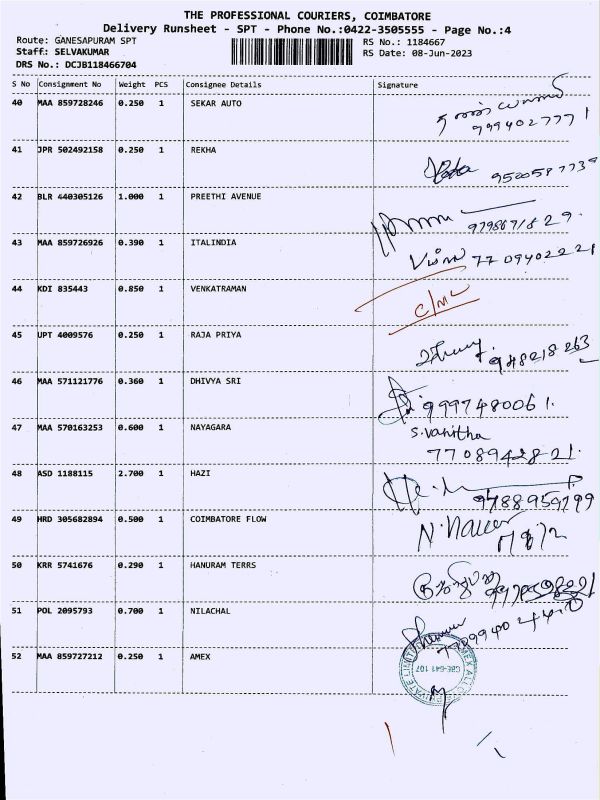 THE PROFESSIONAL COURIERS, COIMBATORE
Delivery Runsheet - SPT - Phone No.:0422-3505555 - Page No.:4
Route: GANESAPURAM SPT RS No.: 1184667
Staff: SELVAKUMAR RS Date: 08-Jun-2023
DRS No.: DCJB118466704
S No Consignment No Weight PCS Consignee Details Signature
40 MAA 859728246 0.250 1 SEKAR AUTO
9994027771
41 JPR 502492158 0.250 1 REKHA
9520587739
42 BLR 440305126 1.000 1 PREETHI AVENUE
43 MAA 859726926 0.390 1 ITALINDIA
7709402221
44 KDI 835443 0.850 1 VENKATRAMAN
45 UPT 4009576 0.250 1 RAJA PRIYA
948218263
46 MAA 571121776 0.360 1 DHIVYA SRI
9997480061.
47 MAA 570163253 0.600 1 NAYAGARA
S.vanitha
7708942821.
48 ASD 1188115 2.700 1 HAZI
9788959799
49 HRD 305682894 0.500 1 COIMBATORE FLOW
50 KRR 5741676 0.290 1 HANURAM TERRS
51 POL 2095793 0.700 1 NILACHAL
52 MAA 859727212 0.250 1 AMEX
CBE-641 107